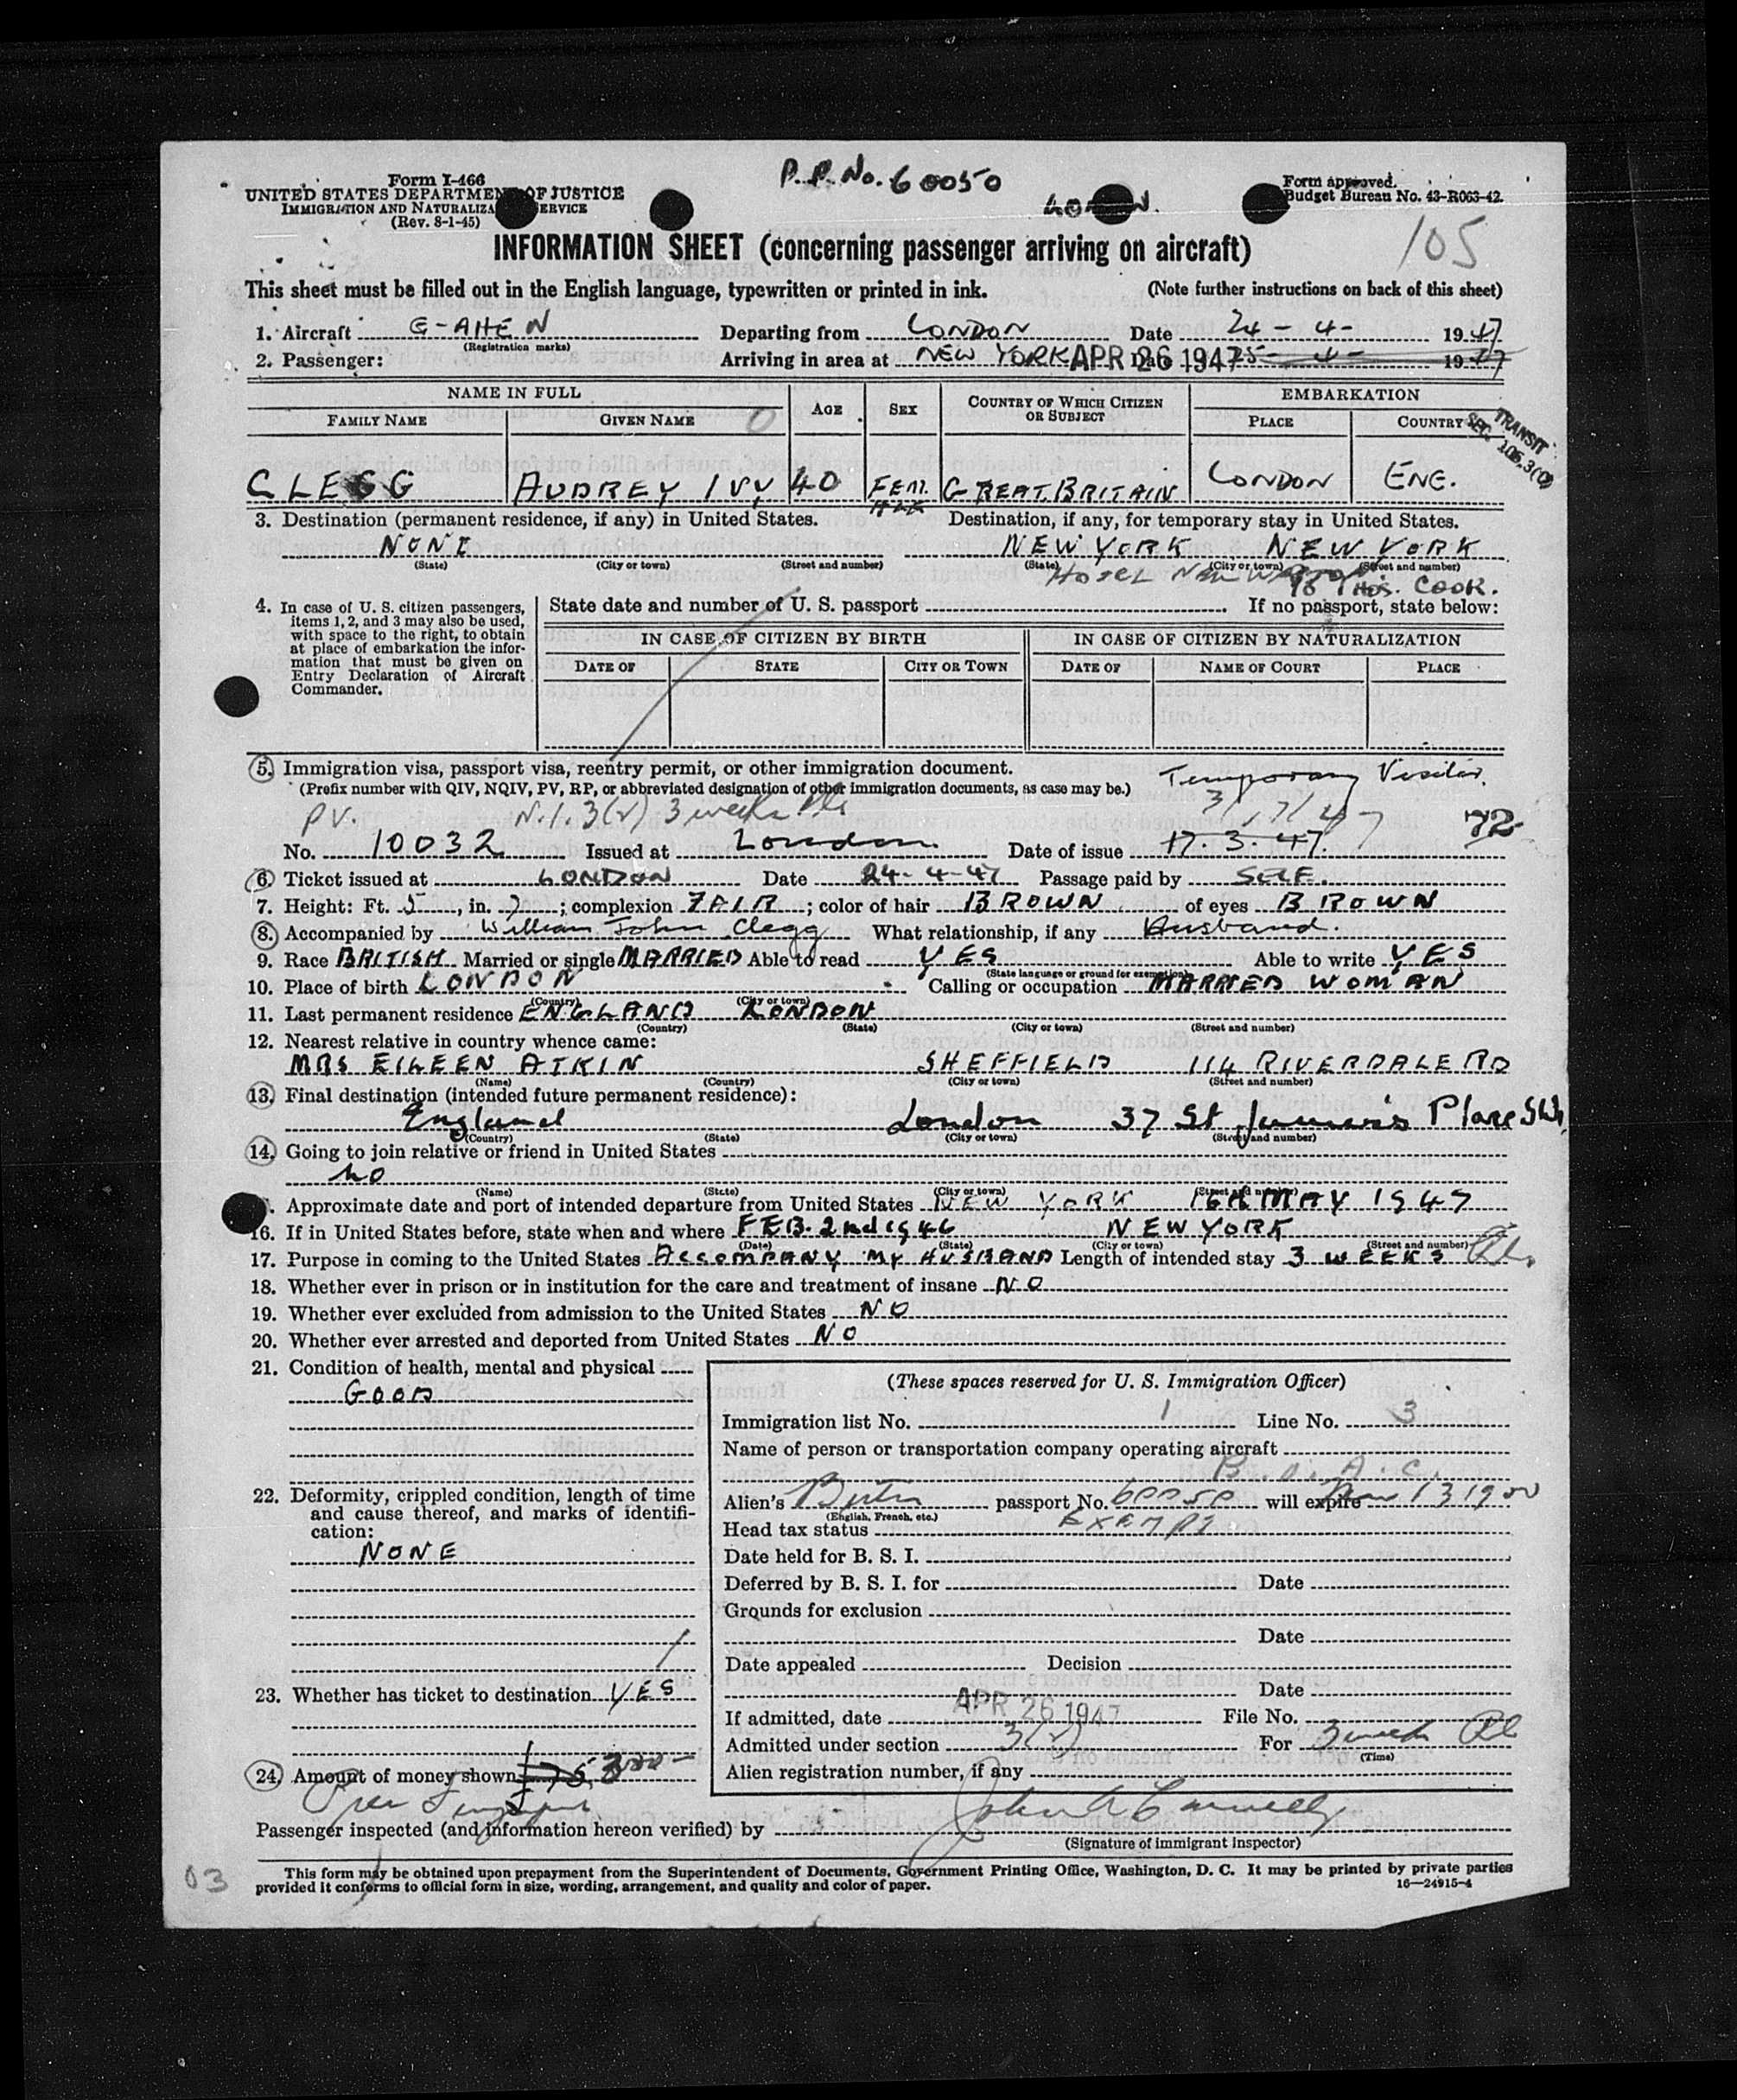 P.P. No. 60050
Form I-466
UNITED STATES DEPARTMENT OF JUSTICE
IMMIGRATION AND NATURALIZA ERVICE
(Rev. 8-1-45)
Form approved.
Budget Bureau No. 43-R063-42.
105
INFORMATION SHEET (concerning passenger arriving on aircraft)
This sheet must be filled out in the English language, typewritten or printed in ink. (Note further instructions on back of this sheet)
1. Aircraft G-AHEN Departing from LONDON Date 24-4- 1947
(Registration marks)
2. Passenger: Arriving in area at NEW YORK APR 26 1947 Date 25-4- 1947
NAME IN FULL AGE SEX COUNTRY OF WHICH CITIZEN OR SUBJECT EMBARKATION
FAMILY NAME GIVEN NAME PLACE COUNTRY
TRANSIT
SEC. 105.3(
CLEGG AUDREY IVY 40 FEM. GREAT BRITAIN LONDON ENG.
3. Destination (permanent residence, if any) in United States. Destination, if any, for temporary stay in United States.
NONE NEW YORK NEW YORK
(State) (City or town) (Street and number) (State) (City or town) (Street and number)
HOTEL NEW
THOS. COOK.
4. In case of U. S. citizen passengers, items 1, 2, and 3 may also be used, with space to the right, to obtain at place of embarkation the information that must be given on Entry Declaration of Aircraft Commander.
State date and number of U. S. passport If no passport, state below:
IN CASE OF CITIZEN BY BIRTH IN CASE OF CITIZEN BY NATURALIZATION
DATE OF STATE CITY OR TOWN DATE OF NAME OF COURT PLACE
5. Immigration visa, passport visa, reentry permit, or other immigration document. Temporary Visitor.
(Prefix number with QIV, NQIV, PV, RP, or abbreviated designation of other immigration documents, as case may be.)
PV. 3(2) 3 weeks 72
No. 10032 Issued at London Date of issue 17.3.47.
6. Ticket issued at LONDON Date 24-4-47 Passage paid by SELF.
7. Height: Ft. 5, in. 7; complexion FAIR; color of hair BROWN of eyes BROWN
8. Accompanied by William John Clegg What relationship, if any Husband.
9. Race BRITISH Married or single MARRIED Able to read YES Able to write YES
(State language or ground for exemption)
10. Place of birth LONDON Calling or occupation MARRIED WOMAN
(Country) (City or town)
11. Last permanent residence ENGLAND LONDON
(Country) (State) (City or town) (Street and number)
12. Nearest relative in country whence came:
MRS EILEEN ATKIN SHEFFIELD 114 RIVERDALE RD
(Name) (Country) (City or town) (Street and number)
13. Final destination (intended future permanent residence):
England London 37 St James's Place SW1
(Country) (State) (City or town) (Street and number)
14. Going to join relative or friend in United States
No
(Name) (State) (City or town) (Street and number)
. Approximate date and port of intended departure from United States NEW YORK 16th MAY 1947
16. If in United States before, state when and where FEB. 2nd 1946 NEW YORK
(Date) (State) (City or town) (Street and number)
17. Purpose in coming to the United States ACCOMPANY MY HUSBAND Length of intended stay 3 WEEKS
18. Whether ever in prison or in institution for the care and treatment of insane NO
19. Whether ever excluded from admission to the United States NO
20. Whether ever arrested and deported from United States NO
21. Condition of health, mental and physical
GOOD
22. Deformity, crippled condition, length of time and cause thereof, and marks of identification:
NONE
23. Whether has ticket to destination YES
24. Amount of money shown
(These spaces reserved for U. S. Immigration Officer)
Immigration list No. 1 Line No. 3
Name of person or transportation company operating aircraft
B.O.A.C.
Alien's passport No. 60050 will expire
(English, French, etc.)
Head tax status EXEMPT
Date held for B. S. I.
Deferred by B. S. I. for Date
Grounds for exclusion
Date
Date appealed Decision
Date
If admitted, date APR 26 1947 File No.
Admitted under section 3(2) For 3 weeks
(Time)
Alien registration number, if any
Passenger inspected (and information hereon verified) by
(Signature of immigrant inspector)
03
This form may be obtained upon prepayment from the Superintendent of Documents, Government Printing Office, Washington, D. C. It may be printed by private parties
provided it conforms to official form in size, wording, arrangement, and quality and color of paper. 16—24915-4